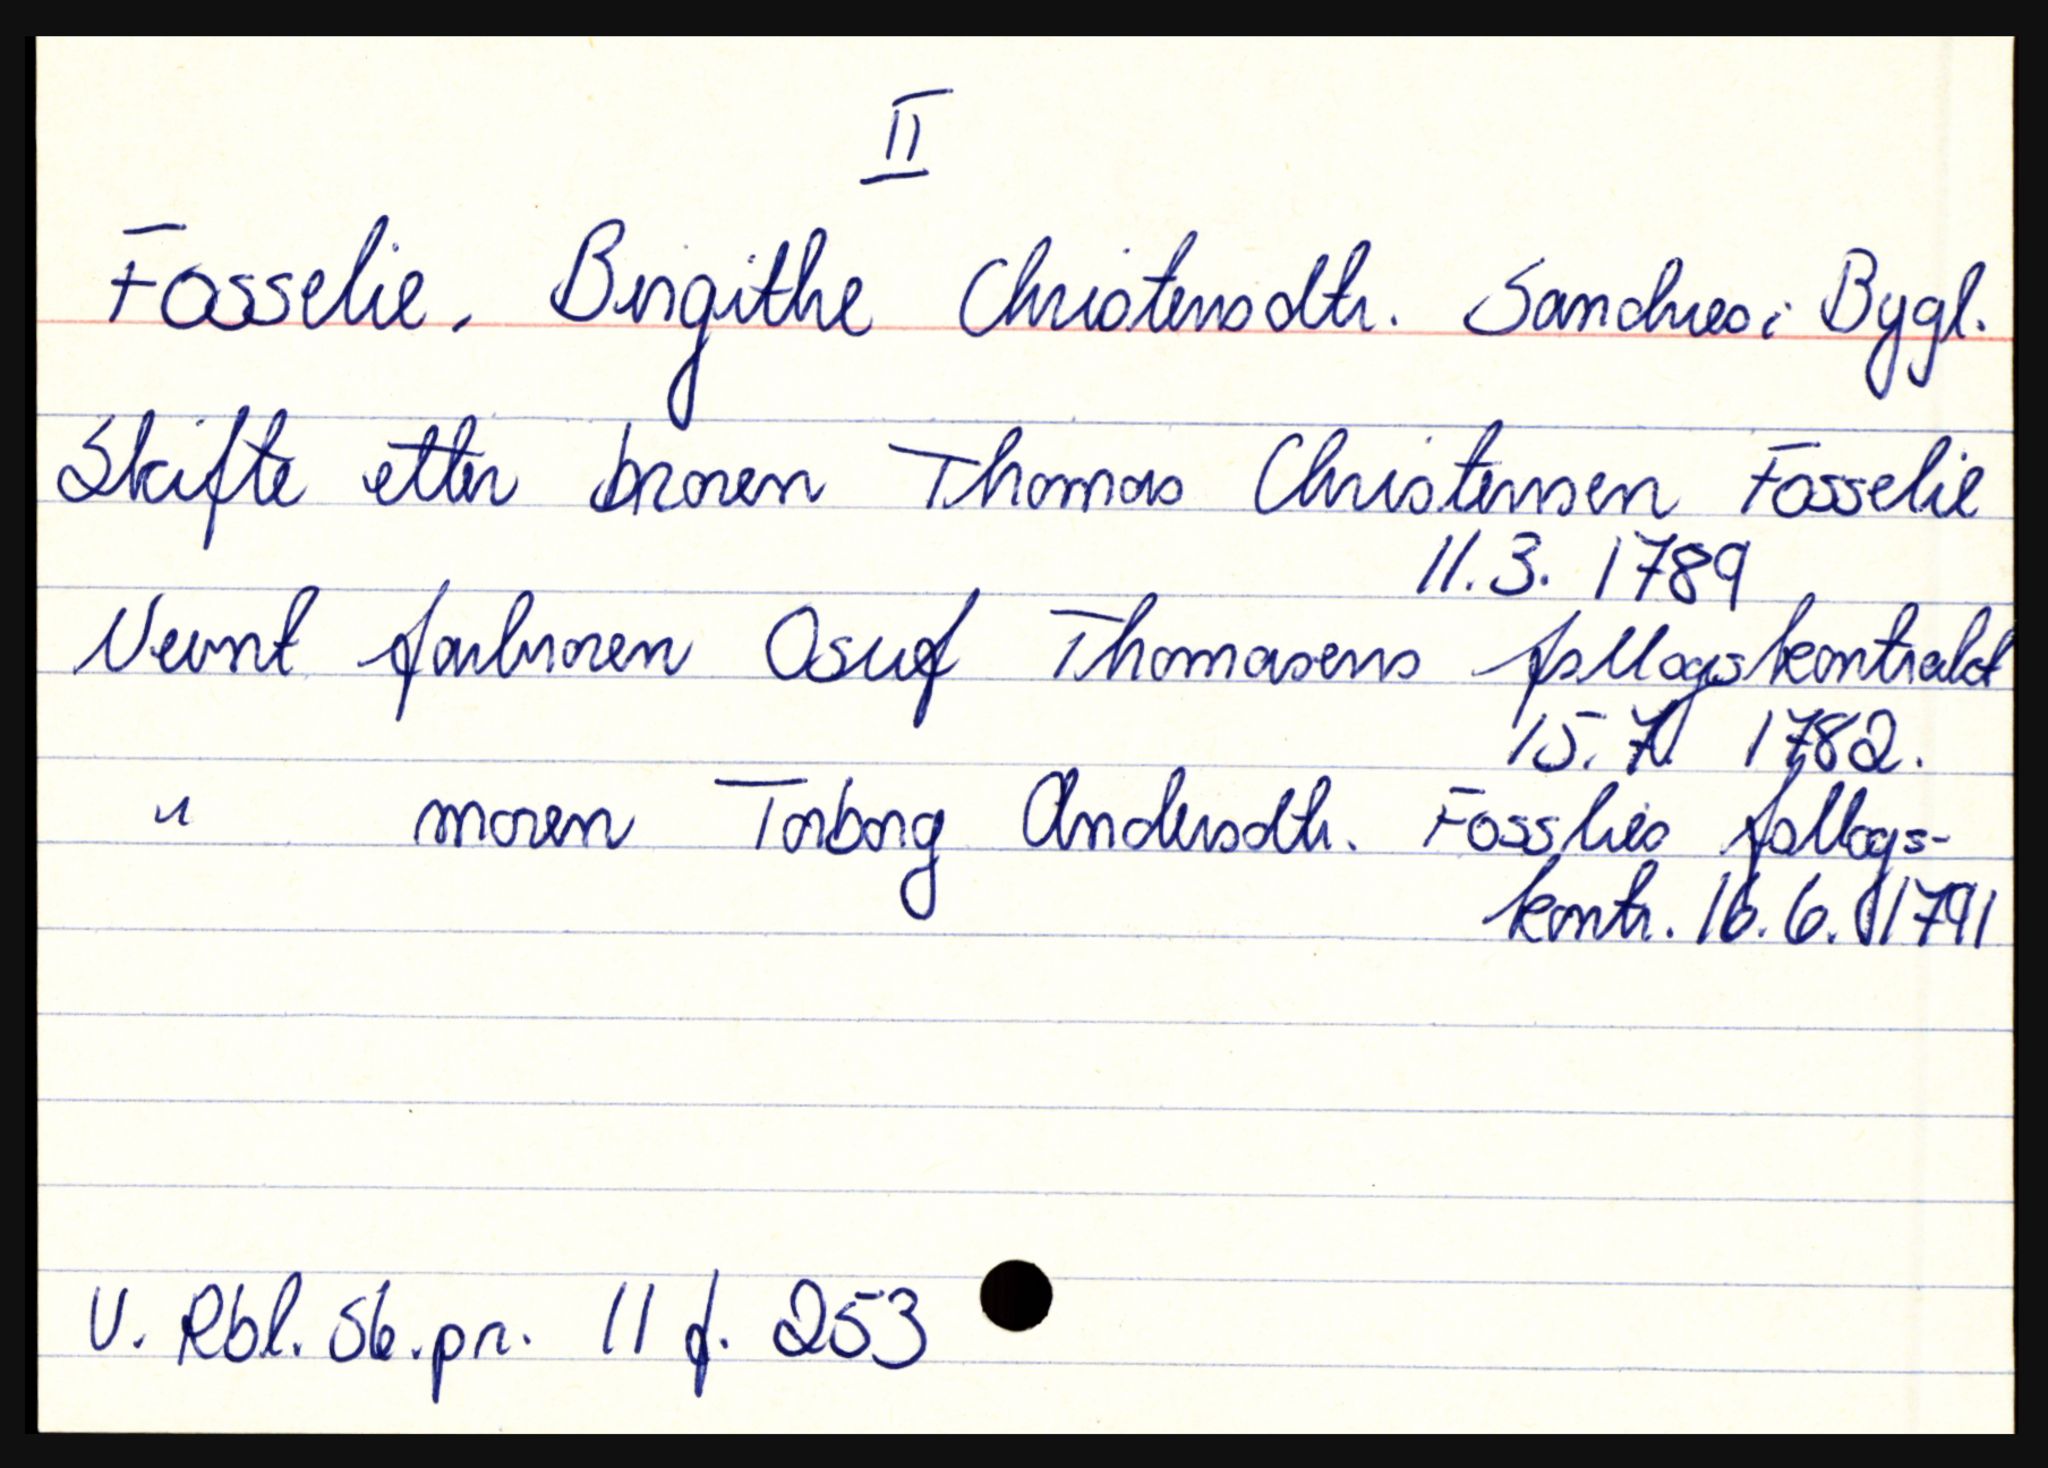 II
Fosselie, Birgithe Christensdtr. Sandnes i Bygl.
Skifte etter broren Thomas Christensen Fosselie
11.3. 1789
Nevnt farbroren Osuf Thomasens fsllogskontrakt
15.7. 1782.
" moren Torborg Andersdtr. Fosslies fsllogs-
kontr. 16.6. 1791
V. Rbl. Sk.pr. 11 f. 253